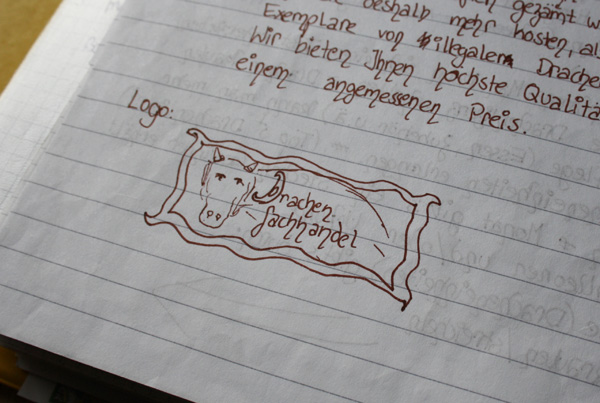 deshalb mehr kosten, al
Exemplare von illegalem Drache
Wir bieten Ihnen höchste Qualitä
einem angemessenen Preis.
Logo:
Drachen
fachhandel